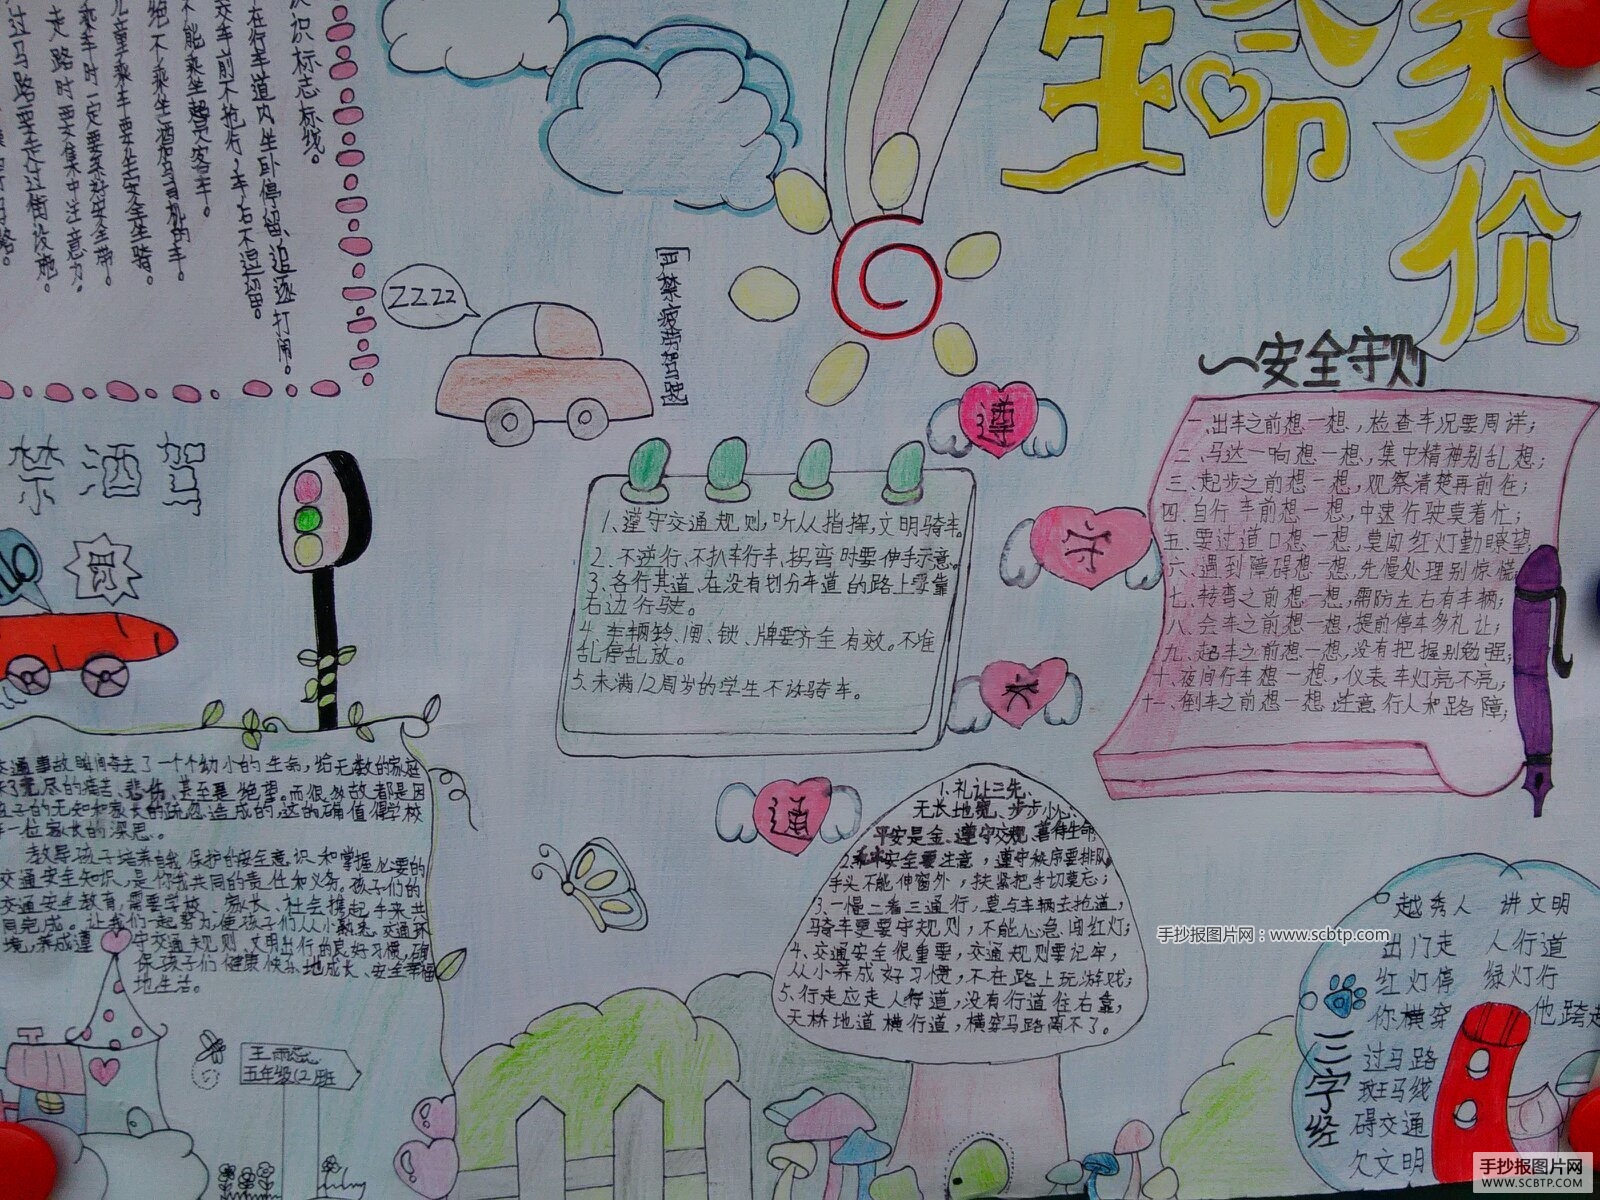 识标志标线。
在行车道内坐卧停留、追逐打闹。
走路时要集中注意力。
过马路要走过街设施。
生命无价
安全守则
ZZZZ
严禁疲劳驾驶
禁酒驾
罚
遵
守
交
通
1、遵守交通规则，听从指挥，文明骑车。
2、不逆行、不扒车行车，拐弯时要伸手示意。
3、各行其道、在没有划分车道的路上要靠
右边行驶。
4、车辆铃、闸、锁、牌要齐全有效。不准
乱停乱放。
5、未满12周岁的学生不该骑车。
一、出车之前想一想，检查车况要周详；
二、马达一响想一想，集中精神别乱想；
三、起步之前想一想，观察清楚再前往；
四、自行车前想一想，中速行驶莫着忙；
五、要过道口想一想，莫闯红灯勤瞭望
六、遇到障碍想一想，先慢处理别惊慌
七、转弯之前想一想，需防左右有车辆；
八、会车之前想一想，提前停车多礼让；
九、起车之前想一想，没有把握别勉强；
十、夜间行车想一想，仪表车灯亮不亮；
十一、倒车之前想一想，注意行人和路障；
交通事故瞬间夺去了一个个幼小的生命，给无数的家庭
来了无尽的痛苦、悲伤、甚至是绝望。而很多事故都是因
孩子的无知和家长的疏忽造成的，这的确值得学校
每一位家长的深思。
教导孩子培养自我保护的安全意识和掌握必要的
交通安全知识，是你我共同的责任和义务。孩子们的
交通安全教育，需要学校、家长、社会携起手来共
同完成。让我们一起努力，使孩子们从小熟悉交通环
境，养成遵守交通规则、文明出行的良好习惯，确
保孩子们健康快乐地成长、安全幸福
地生活。
五年级(2)班
1、礼让三先、
无长地宽、步步小心；
平安是金、遵守交规、善待生命
2、安全要注意，遵守秩序要排队
手头不能伸窗外，扶紧把手切莫忘；
3、一慢二看三通行，莫与车辆去抢道，
骑车更要守规则，不能心急闯红灯；
4、交通安全很重要，交通规则要记牢，
从小养成好习惯，不在路上玩游戏；
5、行走应走人行道，没有行道往右靠，
天桥地道横行道，横穿马路离不了。
手抄报图片网：www.scbtp.com
三字经
越秀人 讲文明
出门走 人行道
红灯停 绿灯行
你横穿 他跨越
过马路
斑马线
碍交通
欠文明
手抄报图片网
WWW.SCBTP.COM